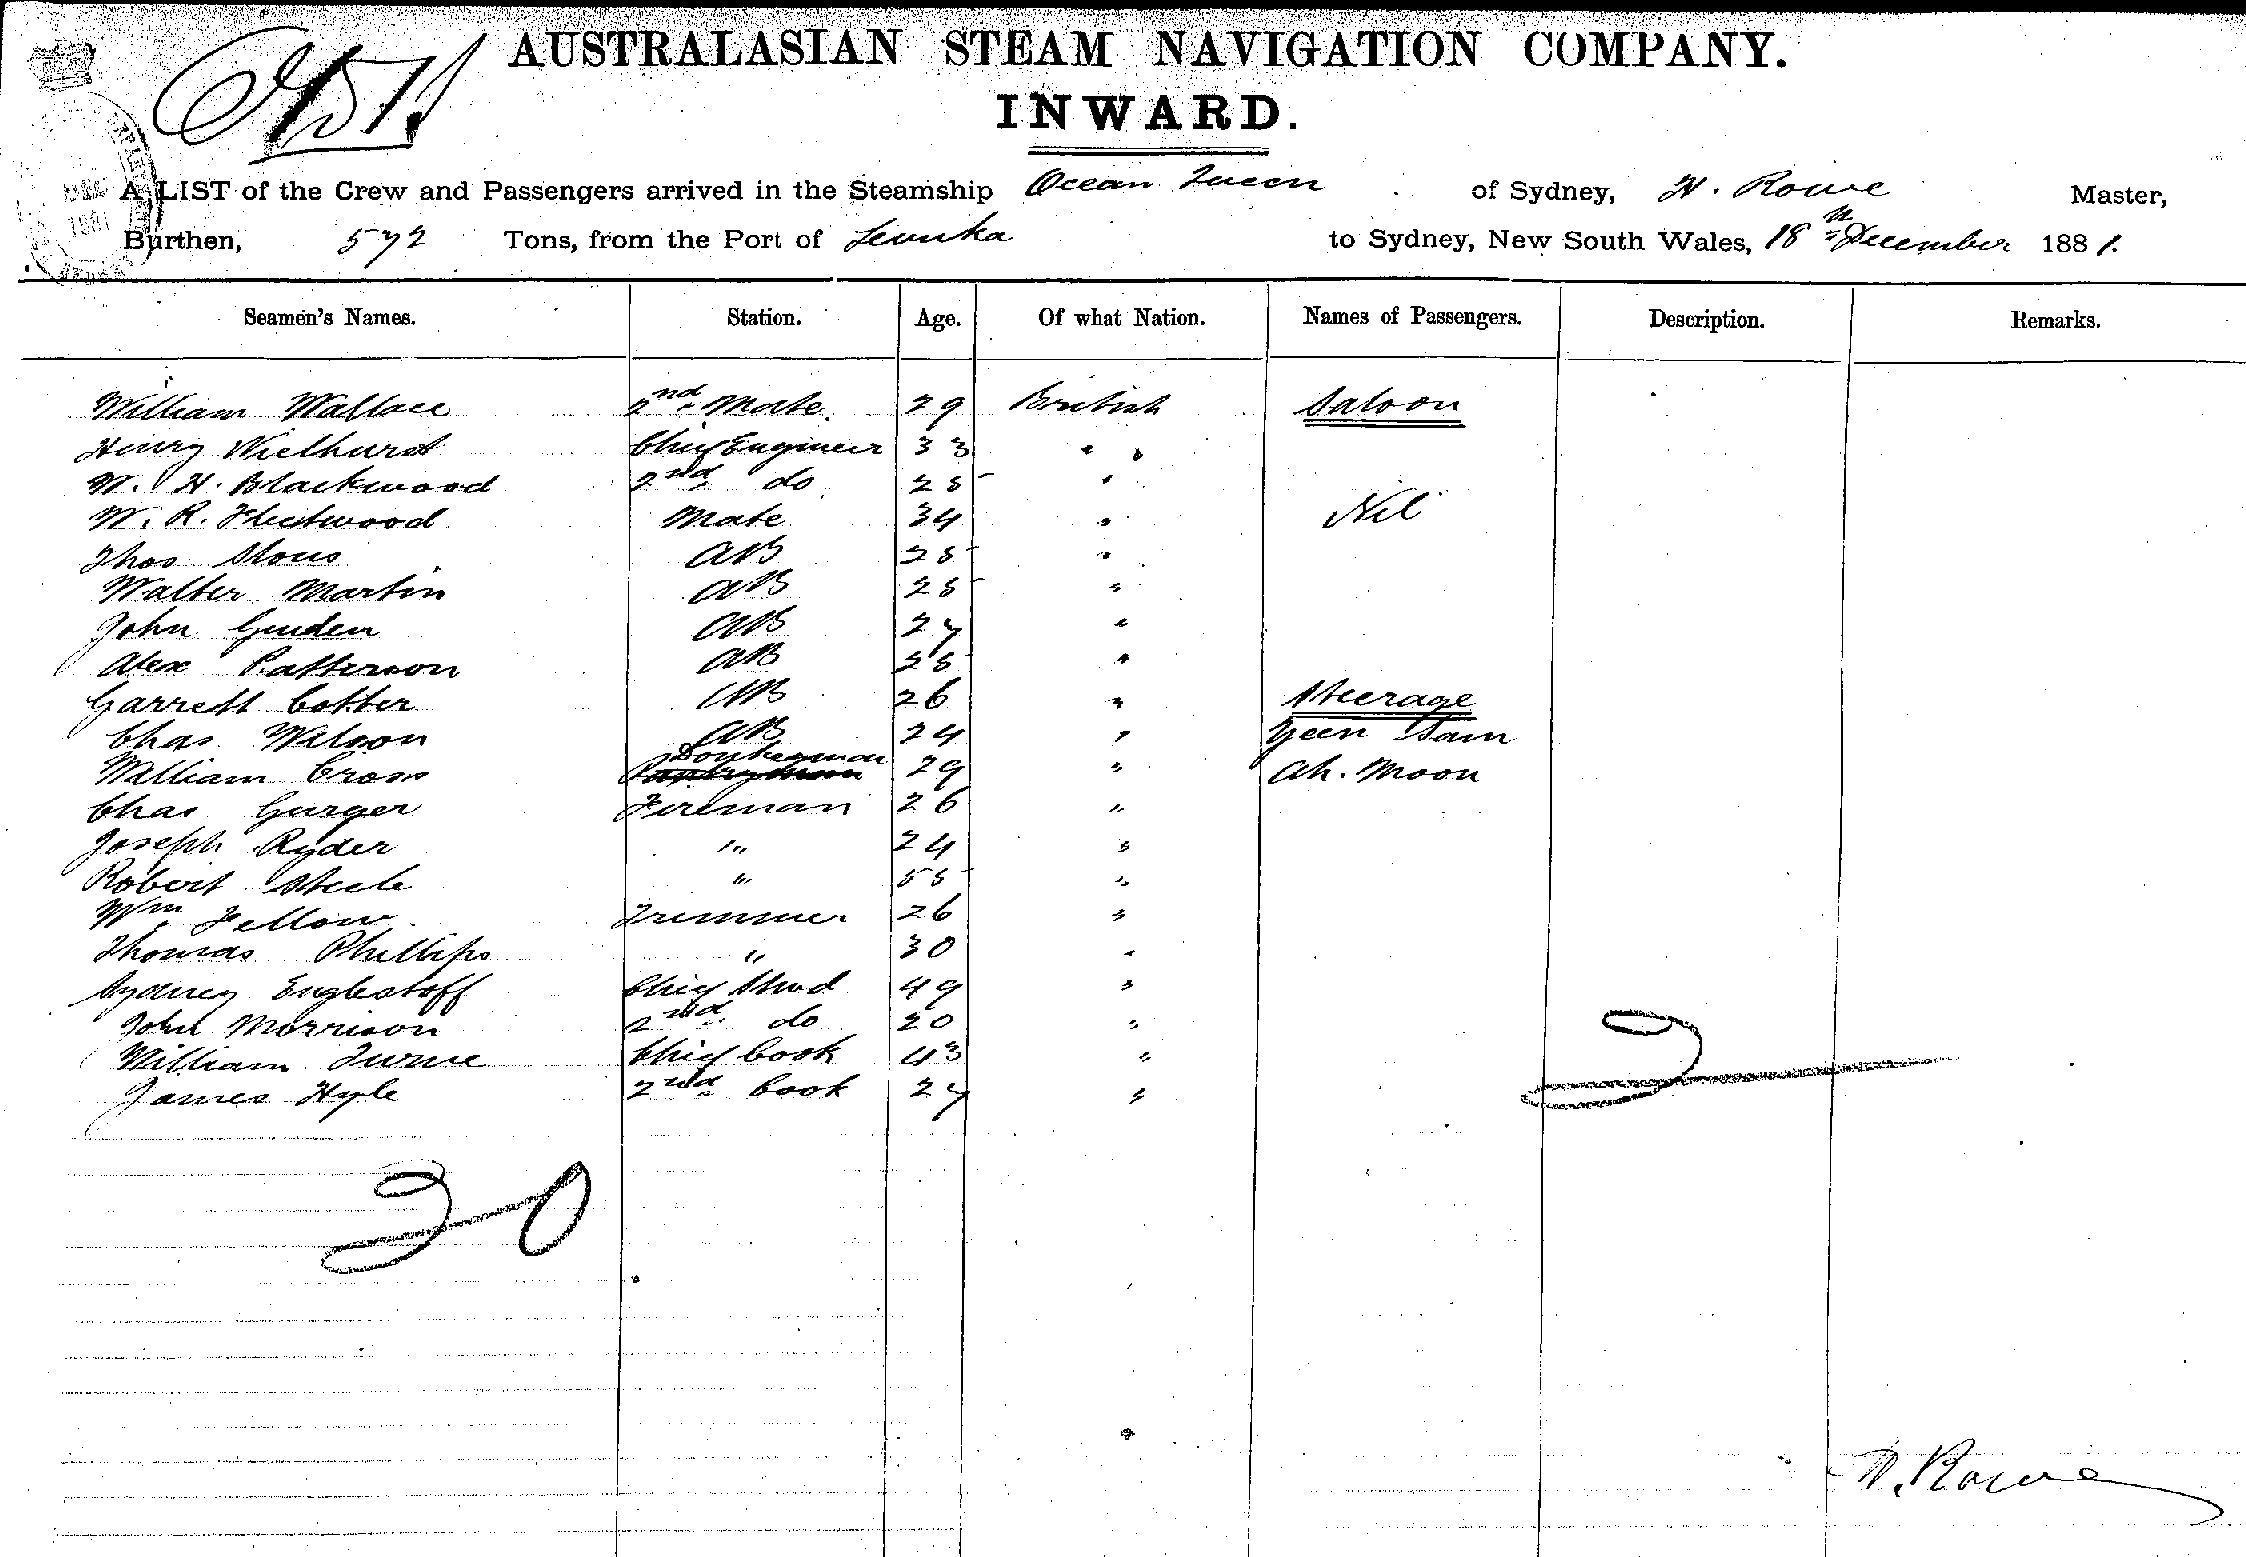 AUSTRALASIAN STEAM NAVIGATION COMPANY.
INWARD.
A LIST of the Crew and Passengers arrived in the Steamship Ocean Queen of Sydney, H. Rowe Master,
Burthen, 572 Tons, from the Port of Levuka to Sydney, New South Wales, 18th December 1881.
Seamen's Names. Station. Age. Of what Nation. Names of Passengers. Description. Remarks.
William Wallace 2nd Mate 29 British Saloon
Henry Chief Engineer 33 " "
W. H. Blackwood 2nd do 25 "
W. R. Fleetwood Mate 34 " Nil
Thos AB 25 "
Walter Martin AB 25 "
John AB 27 "
Alex Patterson AB 25 "
Garrett Cotter AB 26 " Steerage
Chas Wilson AB 24 " Yeen Sam
William Cross Donkeyman 29 " Ah. Moon
Chas Fireman 26 "
Joseph Ryder " 24 "
Robert Steele " 55 "
Wm Fellow Trimmer 26 "
Thomas Phillips " 30 "
Sydney Englestoff Chief Stwd 49 "
John Morrison 2nd do 20 "
William Chief Cook 43 "
James Hyle 2nd Cook 27 "
20
2
H. Rowe